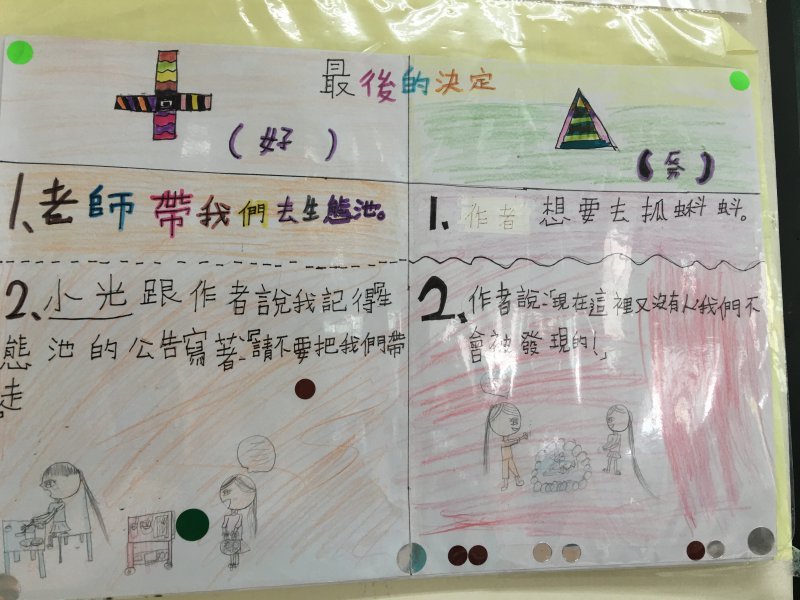 最後的決定
(好)
1、老師帶我們去生態池。
2、小光跟作者說我記得生
態池的公告寫著:「請不要把我們帶
走。
1、作者想要去抓蝌蚪。
2、作者說:「現在這裡又沒有人!我們不
會被發現的!」